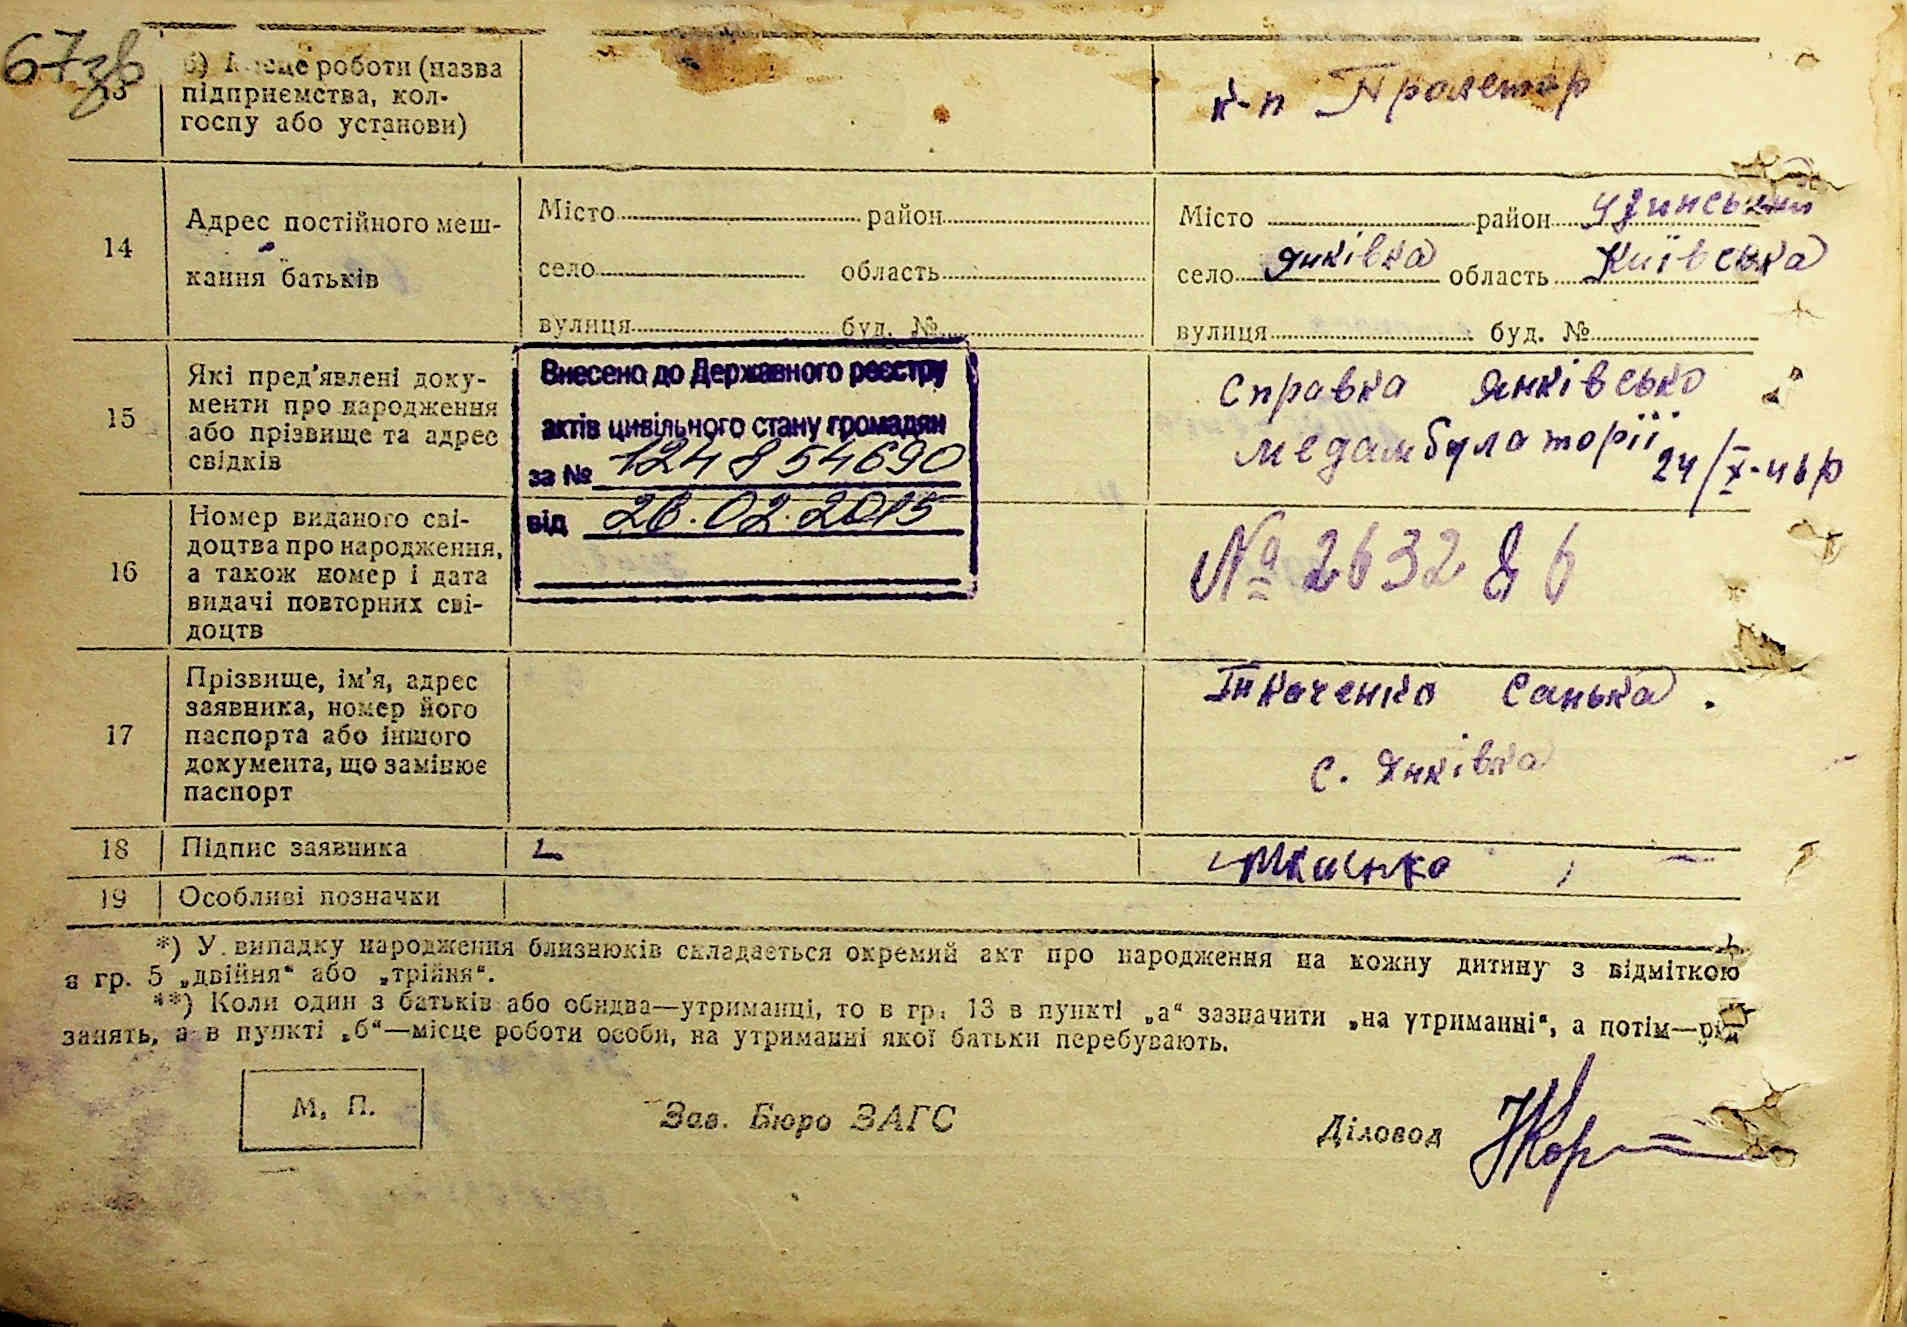 67зв
13
б) Місце роботи (назва
підприємства, кол-
госпу або установи)
к-п Пролетар
14
Адрес постійного меш-
кання батьків
Місто район
село область
вулиця буд. №
Місто район
село Янківка область Київська
вулиця буд. №
15
Які пред'явлені доку-
менти про народження
або прізвище та адрес
свідків
Справка Янківсько
медамбулаторії
24/X-46р
Внесено до Державного реєстру
актів цивільного стану громадян
за № 124854690
від 26.02.2015
16
Номер виданого сві-
доцтва про народження,
а також номер і дата
видачі повторних сві-
доцтв
№ 263286
17
Прізвище, ім'я, адрес
заявника, номер його
паспорта або іншого
документа, що замінює
паспорт
Ткаченко Санька.
с. Янківка
18
Підпис заявника
19
Особливі позначки
*) У випадку народження близнюків складається окремий акт про народження на кожну дитину з відміткою
в гр. 5 „двійня“ або „трійня“.
**) Коли один з батьків або обидва—утриманці, то в гр. 13 в пункті „а“ зазначити „на утриманні“, а потім—рід
занять, а в пункті „б“—місце роботи особи, на утриманні якої батьки перебувають.
М. П.
Зав. Бюро ЗАГС
Діловод